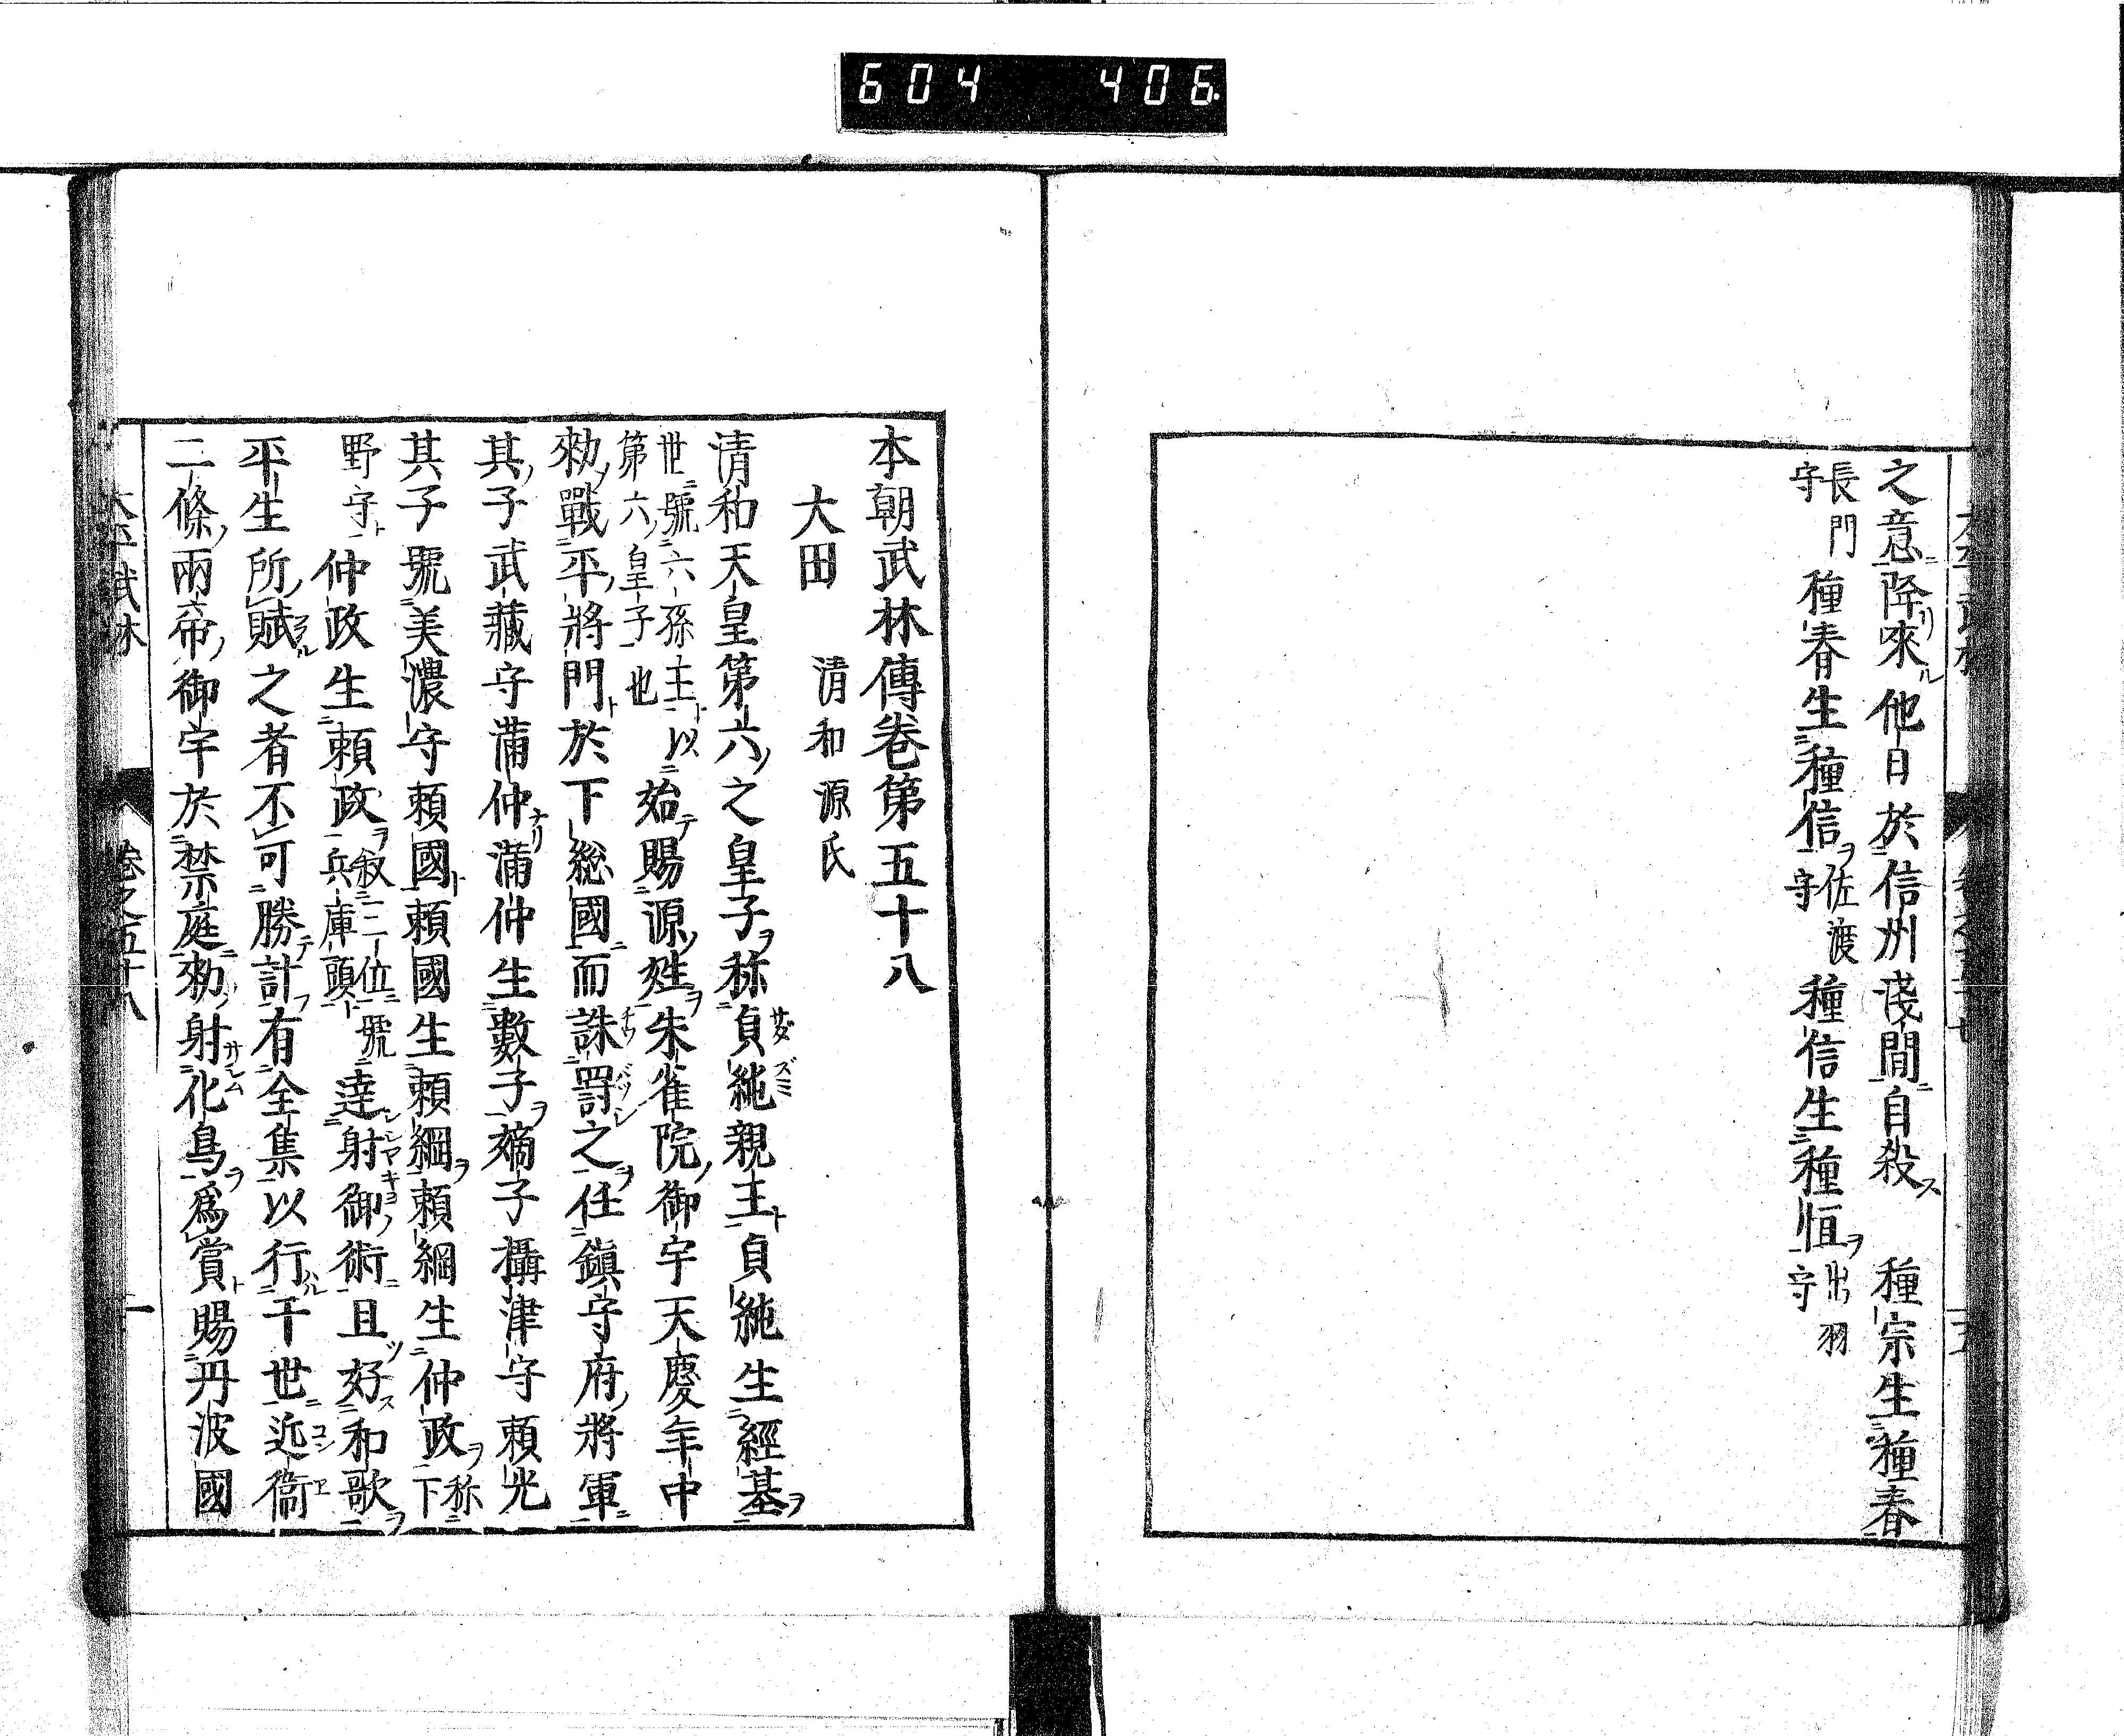 604 406
之意降來他日於信州淺間自殺 種宗生種春
長門守種春生種信佐渡守種信生種恒出羽守
本朝武林傳卷第五十八
大田 清和源氏
清和天皇第六之皇子称貞純親王貞純生經基
世號六孫王以第六皇子也始賜源姓朱雀院御宇天慶年中
勑戰平將門於下總國而誅罸之任鎭守府將軍
其子武藏守滿仲滿仲生數子嫡子攝津守頼光
其子號美濃守頼國頼國生頼綱頼綱生仲政称下
野守仲政生頼政叙二位兵庫頭號達射御術且好和歌
平生所賦之者不可勝計有全集以行干世近衞
二條兩帝御宇於禁庭勑射化鳥爲賞賜丹波國
卷之五十八 一